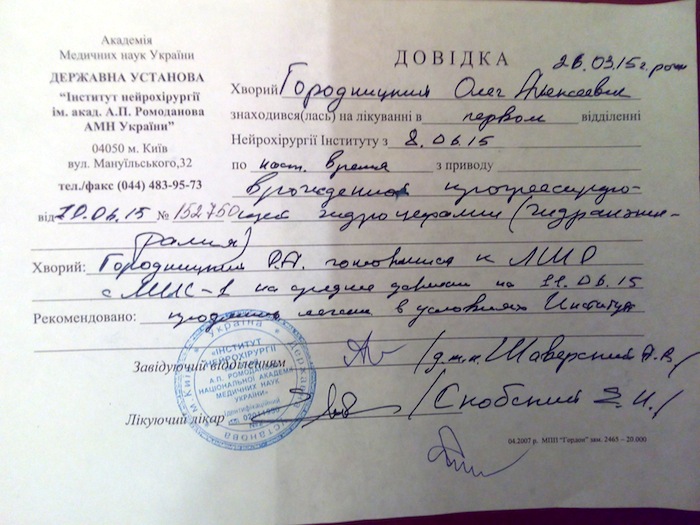 Академія
Медичних наук України
ДЕРЖАВНА УСТАНОВА
“Інститут нейрохірургії
ім. акад. А.П. Ромоданова
АМН України”
04050 м. Київ
вул. Мануїльського,32
тел./факс (044) 483-95-73
від 10.06.15 № 152750
ДОВІДКА 26.03.15 г. рожд
Хворий Городницкий Олег Алексеевич
знаходився(лась) на лікуванні в первом відділенні
Нейрохірургії Інституту з 8.06.15
по наст. время з приводу
врожденной прогрессирую-
щей гидроцефалии (гидранэнце-
фалия)
Хворий: Городницкий О.А. готовится к
на 11.06.15
Рекомендовано: продолжить лечение в условиях Института
Завідуючий відділенням /д.м.н. Шаверский А.В./
Лікуючий лікар /Скобский Е.И./
Україна
м. Київ
«ІНСТИТУТ
НЕЙРОХІРУРГІЇ
ІМ. АКАД.
А.П. РОМОДАНОВА
НАЦІОНАЛЬНОЇ АКАДЕМІЇ
МЕДИЧНИХ НАУК
УКРАЇНИ»
Ідентифікаційний
04.2007 р. МПП “Гордон” зам. 2465 – 20.000